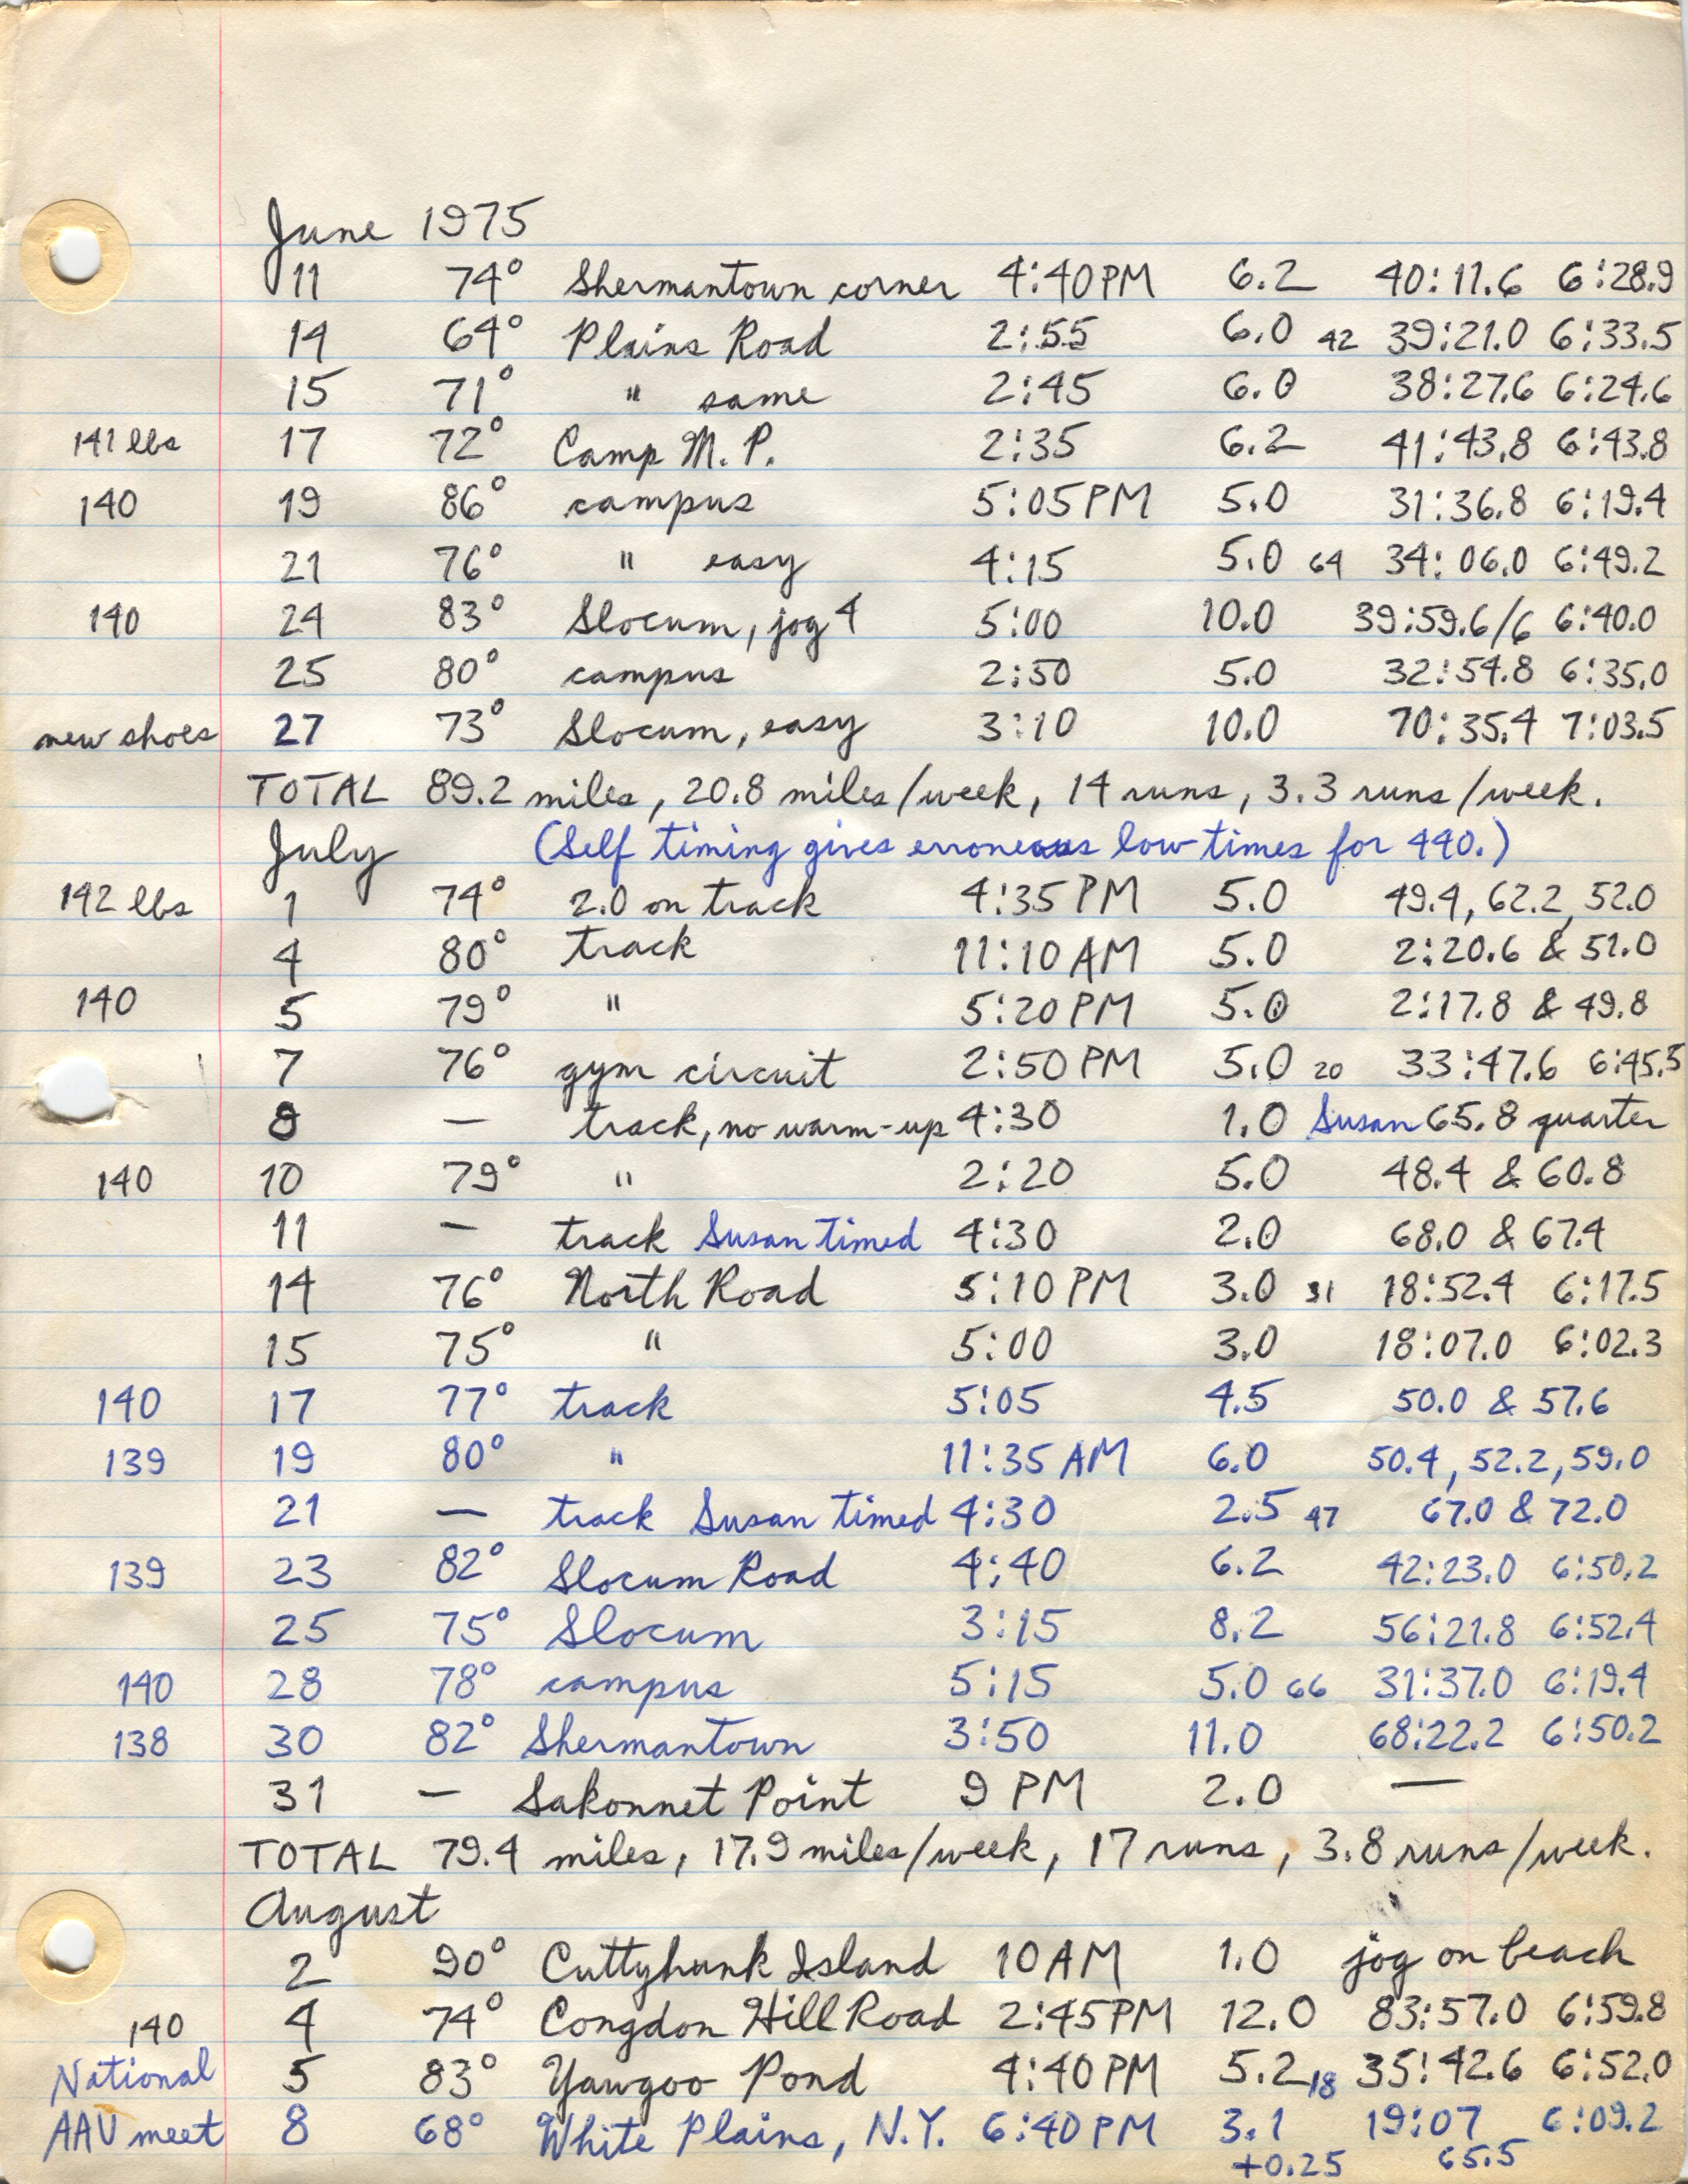 June 1975
11 74° Shermantown corner 4:40 PM 6.2 40:11.6 6:28.9
14 64° Plains Road 2:55 6.0 42 39:21.0 6:33.5
15 71° " same 2:45 6.0 38:27.6 6:24.6
141 lbs 17 72° Camp M. P. 2:35 6.2 41:43.8 6:43.8
140 19 86° campus 5:05 PM 5.0 31:36.8 6:19.4
21 76° " easy 4:15 5.0 64 34:06.0 6:49.2
140 24 83° Slocum, jog 4 5:00 10.0 39:59.6/6 6:40.0
25 80° campus 2:50 5.0 32:54.8 6:35.0
new shoes 27 73° Slocum, easy 3:10 10.0 70:35.4 7:03.5
TOTAL 89.2 miles, 20.8 miles/week, 14 runs, 3.3 runs/week.
July (Self timing gives erroneous low times for 440.)
142 lbs 1 74° 2.0 on track 4:35 PM 5.0 49.4, 62.2, 52.0
4 80° track 11:10 AM 5.0 2:20.6 & 51.0
140 5 79° " 5:20 PM 5.0 2:17.8 & 49.8
7 76° gym circuit 2:50 PM 5.0 20 33:47.6 6:45.5
8 — track, no warm-up 4:30 1.0 Susan 65.8 quarter
140 10 79° " 2:20 5.0 48.4 & 60.8
11 — track Susan timed 4:30 2.0 68.0 & 67.4
14 76° North Road 5:10 PM 3.0 31 18:52.4 6:17.5
15 75° " 5:00 3.0 18:07.0 6:02.3
140 17 77° track 5:05 4.5 50.0 & 57.6
139 19 80° " 11:35 AM 6.0 50.4, 52.2, 59.0
21 — track Susan timed 4:30 2.5 47 67.0 & 72.0
139 23 82° Slocum Road 4:40 6.2 42:23.0 6:50.2
25 75° Slocum 3:15 8.2 56:21.8 6:52.4
140 28 78° campus 5:15 5.0 66 31:37.0 6:19.4
138 30 82° Shermantown 3:50 11.0 68:22.2 6:50.2
31 — Sakonnet Point 9 PM 2.0 —
TOTAL 79.4 miles, 17.9 miles/week, 17 runs, 3.8 runs/week.
August
2 90° Cuttyhunk Island 10 AM 1.0 jog on beach
140 4 74° Congdon Hill Road 2:45 PM 12.0 83:57.0 6:59.8
National 5 83° Yawgoo Pond 4:40 PM 5.2 18 35:42.6 6:52.0
AAU meet 8 68° White Plains, N.Y. 6:40 PM 3.1 19:07 6:09.2
+0.25 65.5